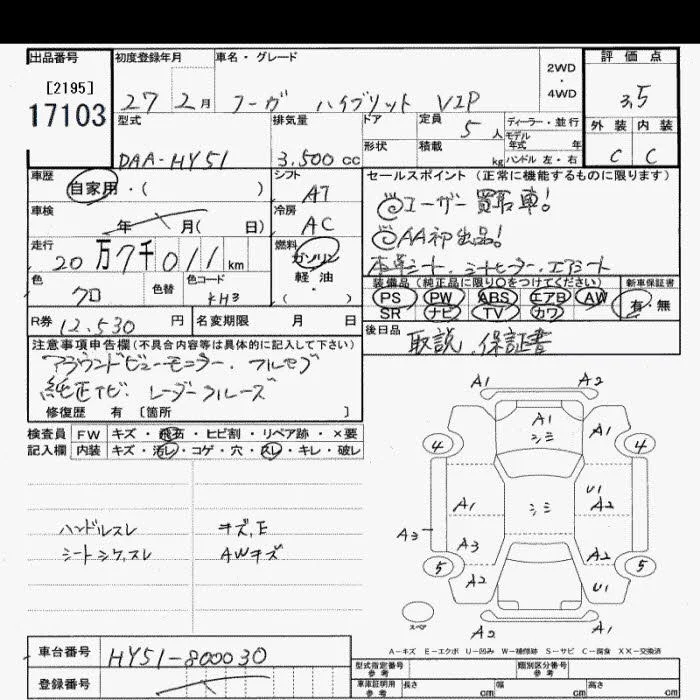 出品番号 初度登録年月 車名・グレード 2WD・4WD 評価点
[2195]
17103
27 2月 フーガ ハイブリット VIP 3.5
型式 排気量 ドア 定員 5人 ディーラー・並行 外装 内装
DAA-HY51 3.500cc 形状 積載 kg モデル年式 年 ハンドル 左・右 C C
車歴 自家用・( ) シフト A7 セールスポイント(正常に機能するものに限ります)
車検 年 月( 日) 冷房 AC ユーザー買取車!
AA初出品!
走行 20万7千011km 燃料 ガソリン・軽・油 本革シート、シートヒーター、エアシート
色 クロ 色替 色コード KH3 装備品(純正品に限り○をつけてください) 新車保証書
PS PW ABS エアB AW 有・無
SR ナビ TV カワ
R券 12.530円 名変期限 月 日 後日品 取説、保証書
注意事項申告欄(不具合内容等は具体的に記入して下さい)
アラウンドビューモニター、フルセグ
純正ナビ、レーダークルーズ
修復歴 有 [箇所 ]
検査員記入欄 FW キズ・飛石・ヒビ割・リペア跡・×要
内装 キズ・汚レ・コゲ・穴・スレ・キレ・破レ
A1 A2
A1 シミ A1
4 4
A1 シミ U1 A2
A3 A3 A2
5 5
A2 U1
スペア A2 A1
ハンドルスレ キズ,E
シートシワ,スレ AWキズ
A-キズ E-エクボ U-凹み W-補修跡 S-サビ C-腐食 XX-交換済
車台番号 HY51-800030
登録番号
型式指定番号 参考 類別区分番号 参考
車庫証明用 参考 長さ cm 幅 cm 高さ cm